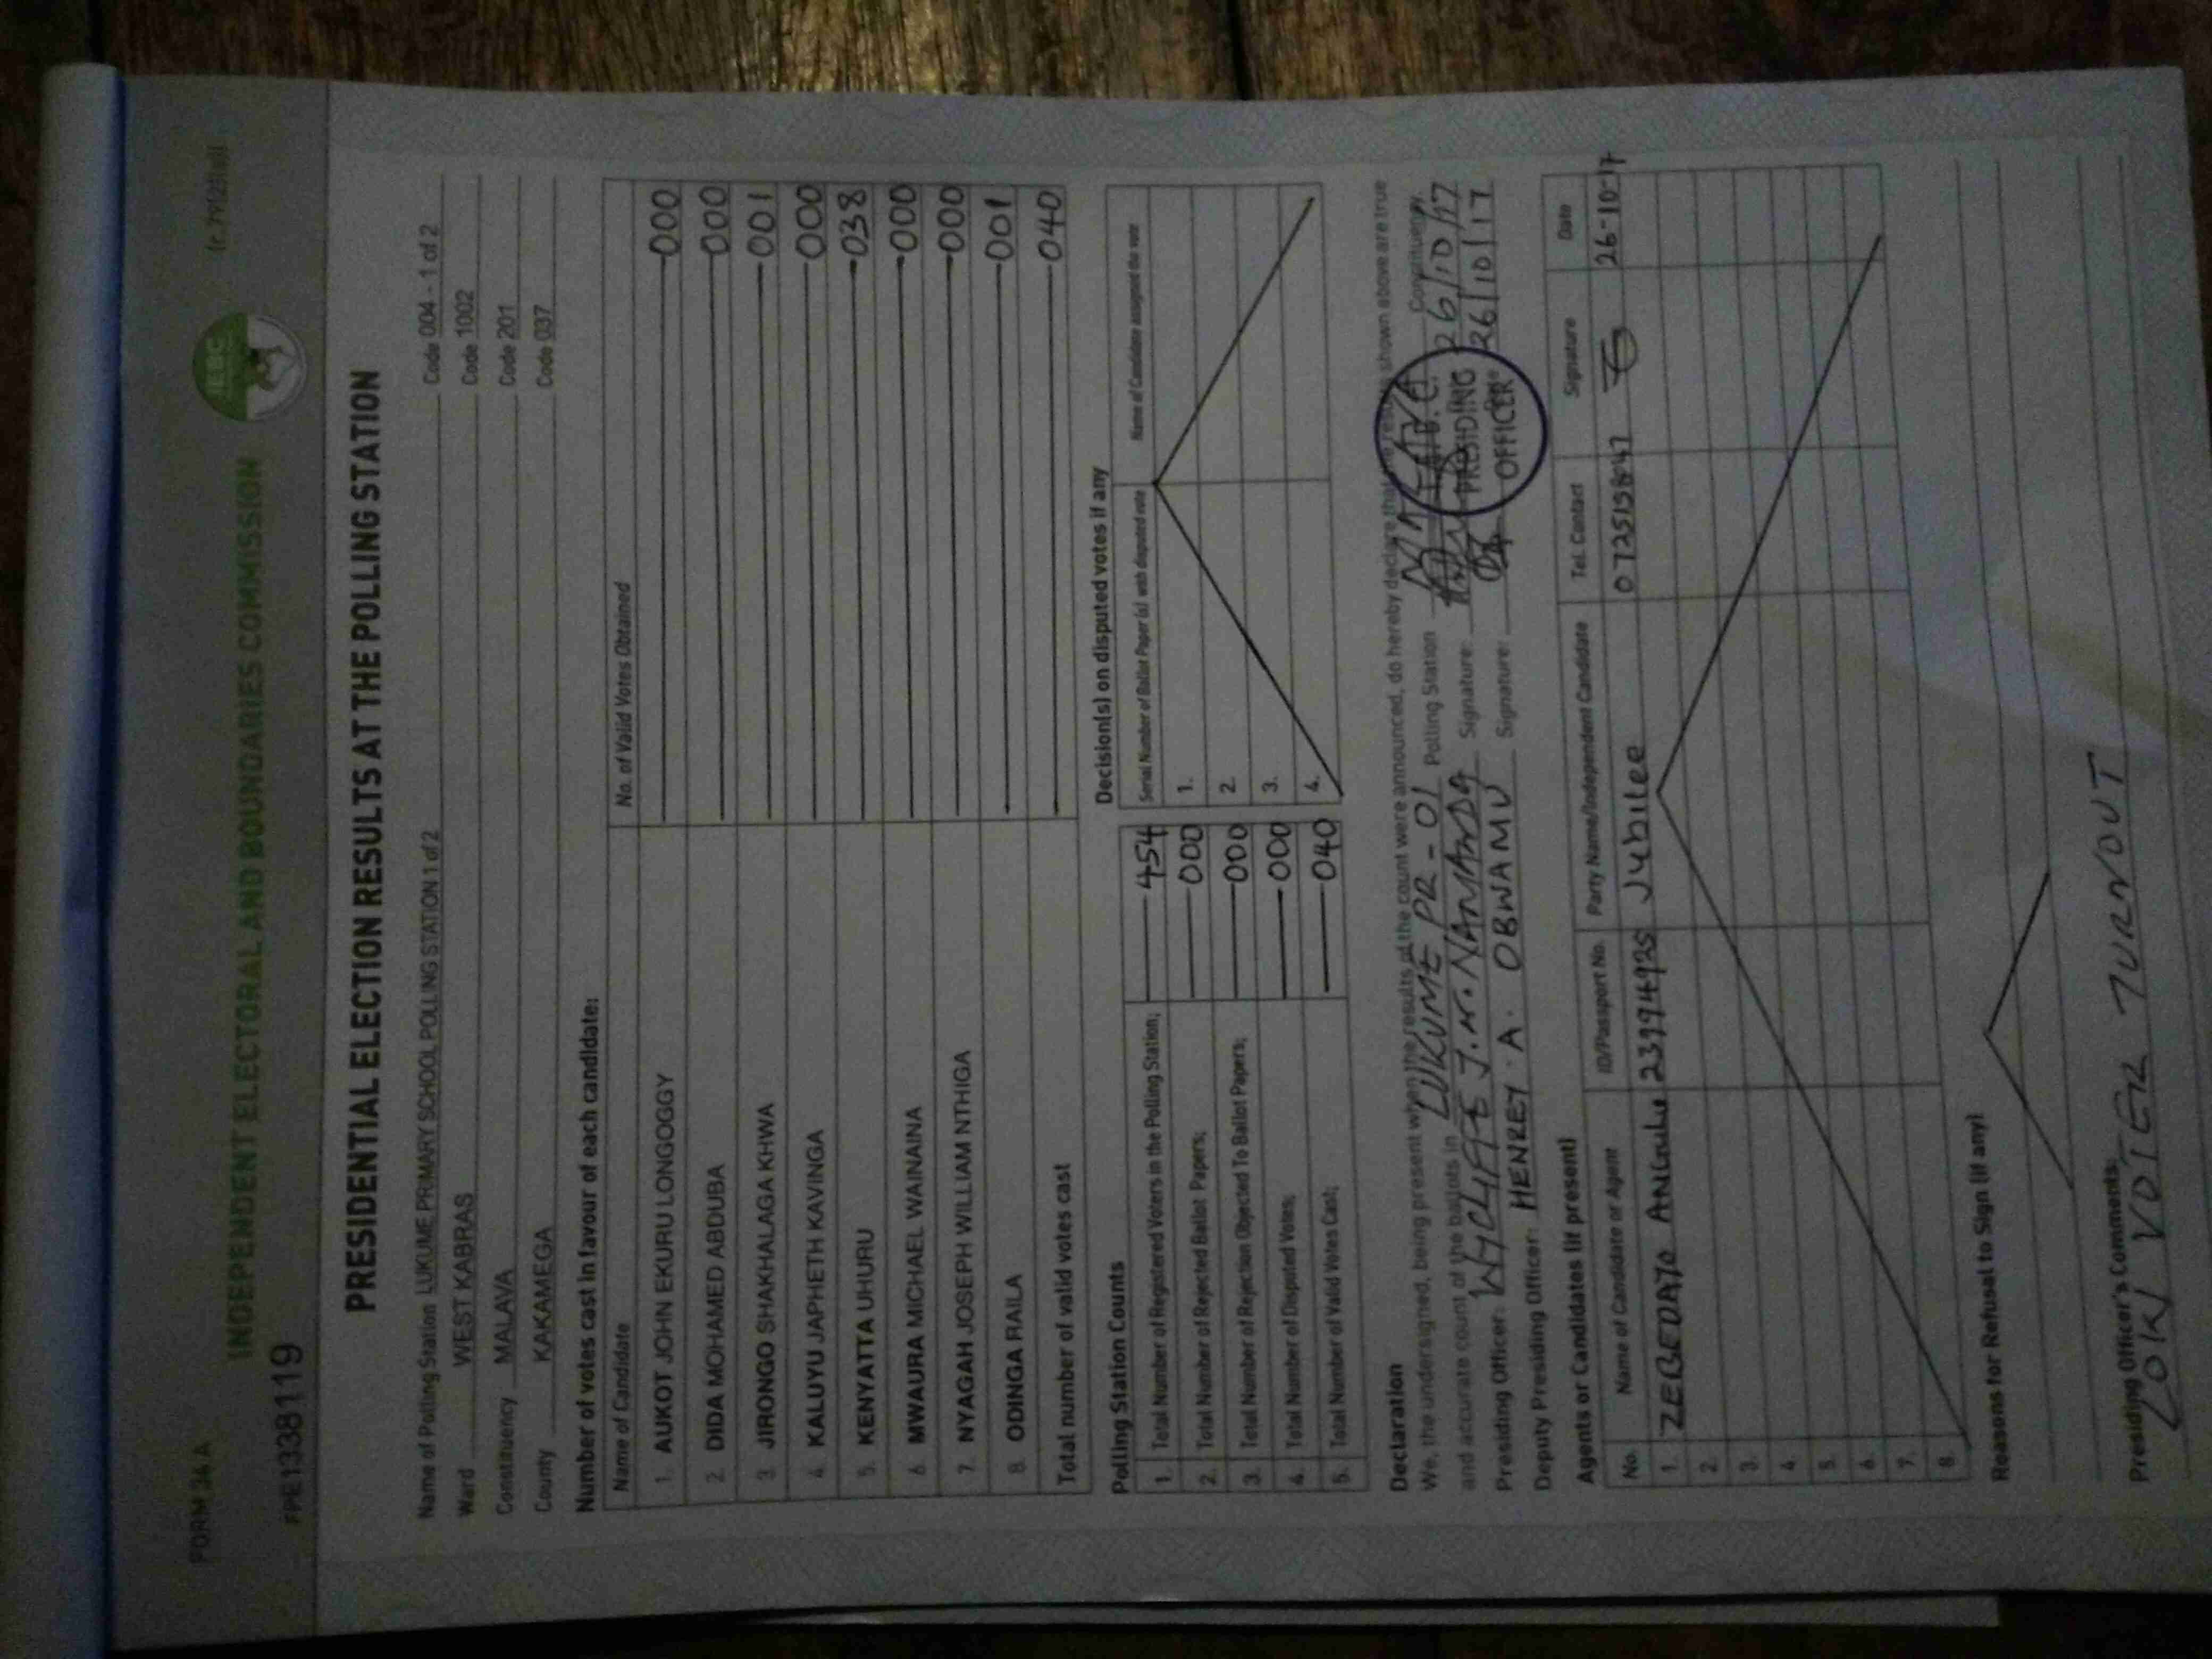 FORM 34 A
(r.79(2)(a))
INDEPENDENT ELECTORAL AND BOUNDARIES COMMISSION
IEBC
FPE1338119
PRESIDENTIAL ELECTION RESULTS AT THE POLLING STATION
Name of Polling Station LUKUME PRIMARY SCHOOL POLLING STATION 1 of 2 Code 004 - 1 of 2
Ward WEST KABRAS Code 1002
Constituency MALAVA Code 201
County KAKAMEGA Code 037
Number of votes cast in favour of each candidate:
Name of Candidate No. of Valid Votes Obtained
1. AUKOT JOHN EKURU LONGOGGY 000
2. DIDA MOHAMED ABDUBA 000
3. JIRONGO SHAKHALAGA KHWA 001
4. KALUYU JAPHETH KAVINGA 000
5. KENYATTA UHURU 038
6. MWAURA MICHAEL WAINAINA 000
7. NYAGAH JOSEPH WILLIAM NTHIGA 000
8. ODINGA RAILA 001
Total number of valid votes cast 040
Polling Station Counts
1. Total Number of Registered Voters in the Polling Station; 454
2. Total Number of Rejected Ballot Papers; 000
3. Total Number of Rejection Objected To Ballot Papers; 000
4. Total Number of Disputed Votes; 000
5. Total Number of Valid Votes Cast; 040
Decision(s) on disputed votes if any
Serial Number of Ballot Paper (s) with disputed vote Name of Candidate assigned the vote
1.
2.
3.
4.
Declaration
We, the undersigned, being present when the results of the count were announced, do hereby declare that the results shown above are true
and accurate count of the ballots in LUKUME PR - 01 Polling Station MALAVA Constituency.
Presiding Officer: WYCLIFFE J.N. NAMANDA Signature: 26/10/17
Deputy Presiding Officer: HENREY A. OBWAMU Signature: Date 26/10/17
PRESIDING
OFFICER
Agents or Candidates (if present)
No. Name of Candidate or Agent ID/Passport No. Party Name/Independent Candidate Tel. Contact Signature Date
1. ZEBEDAYO 23994935 Jubilee 26-10-17
2.
3.
4.
5.
6.
7.
8.
Reasons for Refusal to Sign (if any)
Presiding Officer's Comments:
LOW VOTER TURNOUT